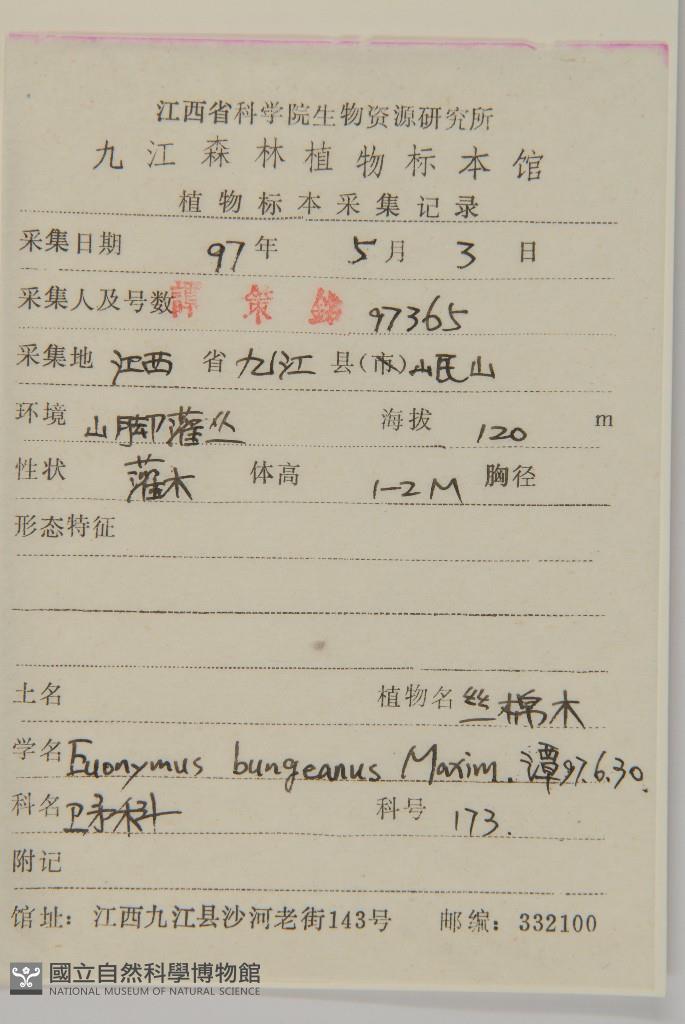 江西省科学院生物资源研究所
九江森林植物标本馆
植物标本采集记录
采集日期 97年 5月 3 日
采集人及号数 譚策銘 97365
采集地 江西 省 九江 县(市) 岷山
环境 山脚灌丛 海拔 120 m
性状 灌木 体高 1-2M 胸径
形态特征
土名 植物名 丝棉木
学名 Euonymus bungeanus Maxim. 潭97.6.30.
科名 卫矛科 科号 173.
附记
馆址：江西九江县沙河老街143号 邮编：332100
國立自然科學博物館
NATIONAL MUSEUM OF NATURAL SCIENCE